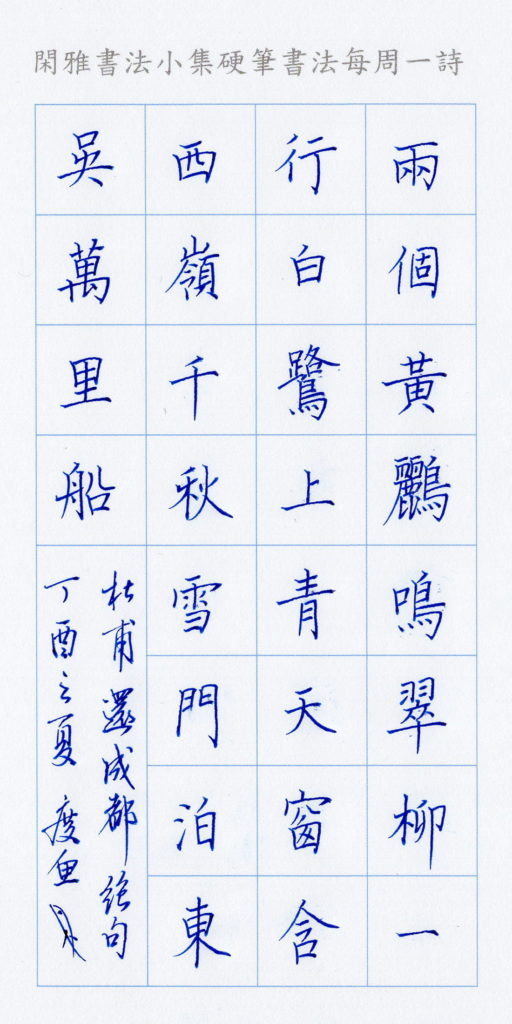 閑雅書法小集硬筆書法每周一詩
兩個黃鸝鳴翠柳一
行白鷺上青天窗含
西嶺千秋雪門泊東
吳萬里船
杜甫還成都絕句
丁酉之夏 度魚